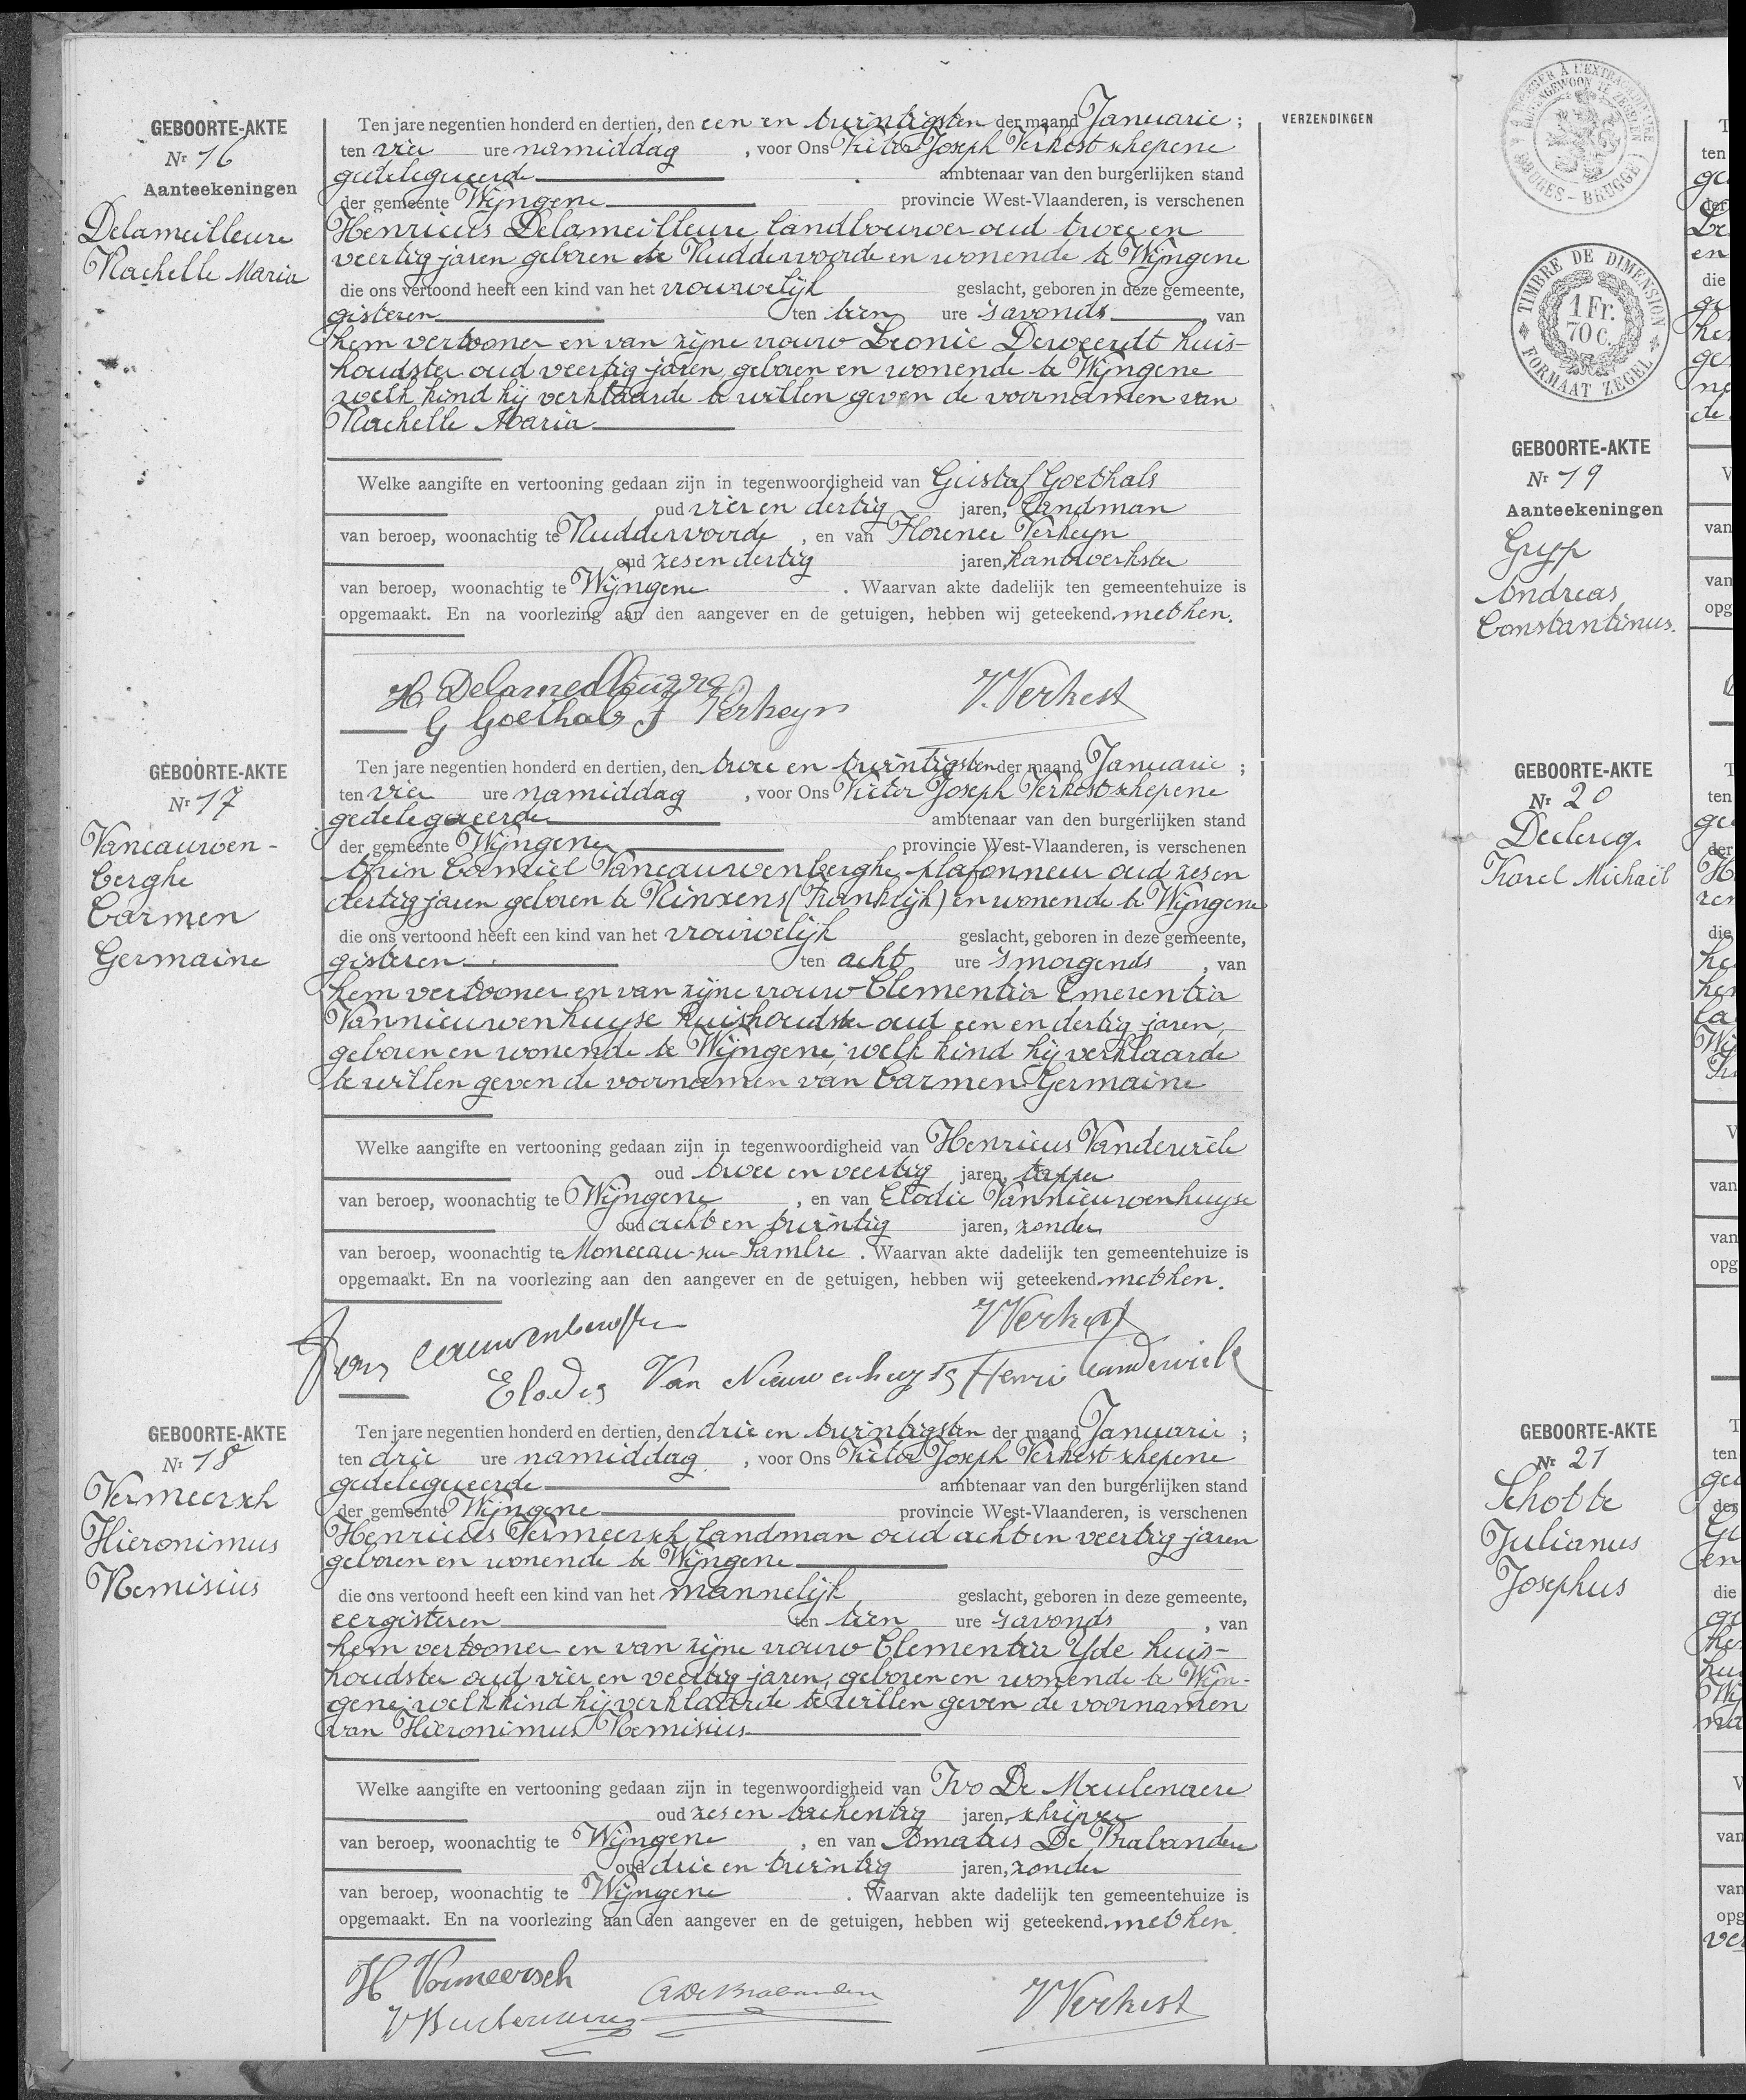 GEBOORTE-AKTE
Nr 16
Aanteekeningen
Delameilleure
Rachelle Maria
Ten jare negentien honderd en dertien, den een en twintigsten der maand Januarie ;
ten vier ure namiddag , voor Ons Victor Joseph Verhest schepene
gedelegueerde ambtenaar van den burgerlijken stand
der gemeente Wijngene provincie West-Vlaanderen, is verschenen
Henricus Delameilleure landbouwer oud twee en
veertig jaren geboren te Ruddervoorde en wonende te Wijngene
die ons vertoond heeft een kind van het vrouwelijk geslacht, geboren in deze gemeente,
gisteren ten tien ure 's avonds , van
hem vertooner en van zijne vrouw Leonie Deweerdt huis-
houdster oud veertig jaren geboren en wonende te Wijngene
welk kind hij verklaarde te willen geven de voornamen van
Rachelle Maria
Welke aangifte en vertooning gedaan zijn in tegenwoordigheid van Gustaf Goethals
oud vier en dertig jaren, landman
van beroep, woonachtig te Ruddervoorde , en van Florence Verheyn
oud zes en dertig jaren, kantwerkster
van beroep, woonachtig te Wijngene . Waarvan akte dadelijk ten gemeentehuize is
opgemaakt. En na voorlezing aan den aangever en de getuigen, hebben wij geteekend met hen.
V. Verhest
G Goethals F Verheyn
GEBOORTE-AKTE
Nr 17
Vancauwen-
berghe
Carmen
Germaine
Ten jare negentien honderd en dertien, den twee en twintigsten der maand Januarie ;
ten vier ure namiddag , voor Ons Victor Joseph Verhest schepene
gedelegueerde ambtenaar van den burgerlijken stand
der gemeente Wijngene provincie West-Vlaanderen, is verschenen
Camiel Vancauwenberghe plafonneur oud zes en
dertig jaren geboren te Rinxens (Frankrijk) en wonende te Wijngene
die ons vertoond heeft een kind van het vrouwelijk geslacht, geboren in deze gemeente,
gisteren ten acht ure 's morgends , van
hem vertooner en van zijne vrouw Clementia Emerentia
Vannieuwenhuyse huishoudster oud een en dertig jaren,
geboren en wonende te Wijngene; welk kind hij verklaarde
te willen geven de voornamen van Carmen Germaine
Welke aangifte en vertooning gedaan zijn in tegenwoordigheid van Henricus Vandewiele
oud twee en veertig jaren, tapper
van beroep, woonachtig te Wijngene , en van Elodie Vannieuwenhuyse
oud acht en twintig jaren, zonder
van beroep, woonachtig te Monceau-sur-Sambre . Waarvan akte dadelijk ten gemeentehuize is
opgemaakt. En na voorlezing aan den aangever en de getuigen, hebben wij geteekend met hen.
V Verhest
Van Nieuwenhuyse Henri Vandewiele
GEBOORTE-AKTE
Nr 18
Vermeersch
Hieronimus
Remisius
Ten jare negentien honderd en dertien, den drie en twintigsten der maand Januarie ;
ten drie ure namiddag , voor Ons Victor Joseph Verhest schepene
gedelegueerde ambtenaar van den burgerlijken stand
der gemeente Wijngene provincie West-Vlaanderen, is verschenen
Henricus Vermeersch landman oud acht en veertig jaren
geboren en wonende te Wijngene
die ons vertoond heeft een kind van het mannelijk geslacht, geboren in deze gemeente,
eergisteren ten tien ure 's avonds , van
hem vertooner en van zijne vrouw Clementia Yde huis-
houdster oud vier en veertig jaren, geboren en wonende te Wijn-
gene; welk kind hij verklaarde te willen geven de voornamen
van Hieronimus Remisius
Welke aangifte en vertooning gedaan zijn in tegenwoordigheid van Ivo De Meulenaere
oud zes en tachentig jaren, schrijver
van beroep, woonachtig te Wijngene , en van Amatus De Brabandere
oud drie en twintig jaren, zonder
van beroep, woonachtig te Wijngene . Waarvan akte dadelijk ten gemeentehuize is
opgemaakt. En na voorlezing aan den aangever en de getuigen, hebben wij geteekend met hen
H Vermeersch
V Verhest
VERZENDINGEN
BRUGES - BRUGGE
TIMBRE DE DIMENSION
1 Fr.
70 C.
FORMAAT ZEGEL
GEBOORTE-AKTE
Nr 19
Aanteekeningen
Gryp
Andreas
Constantinus.
GEBOORTE-AKTE
Nr 20
Declercq
Karel Michaël
GEBOORTE-AKTE
Nr 21
Schotte
Julianus
Josephus